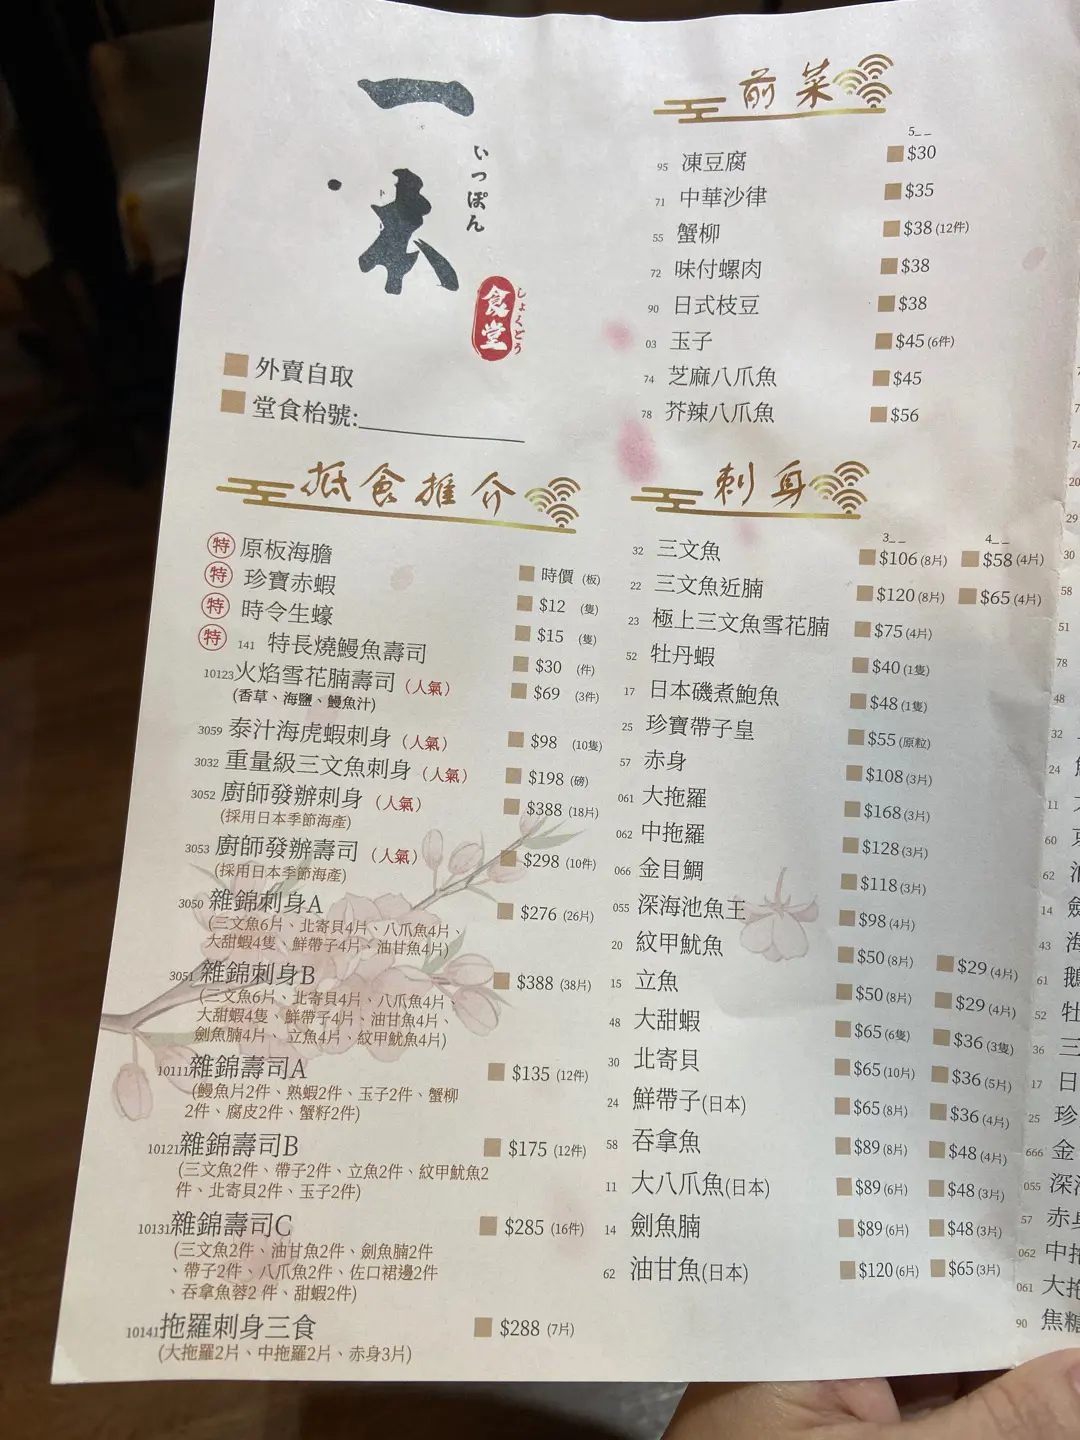 一
本
いっぽん
食堂
しょくどう
外賣自取
堂食枱號:
抵食推介
特 原板海膽 時價 (板)
特 珍寶赤蝦 $12 (隻)
特 時令生蠔 $15 (隻)
特 141 特長燒鰻魚壽司 $30 (件)
10123 火焰雪花腩壽司 (人氣) $69 (3件)
(香草、海鹽、鰻魚汁)
3059 泰汁海虎蝦刺身 (人氣) $98 (10隻)
3032 重量級三文魚刺身 (人氣) $198 (磅)
3052 廚師發辦刺身 (人氣) $388 (18片)
(採用日本季節海產)
3053 廚師發辦壽司 (人氣) $298 (10件)
(採用日本季節海產)
3050 雜錦刺身A $276 (26片)
(三文魚6片、北寄貝4片、八爪魚4片、
大甜蝦4隻、鮮帶子4片、油甘魚4片)
3051 雜錦刺身B $388 (38片)
(三文魚6片、北寄貝4片、八爪魚4片、
大甜蝦4隻、鮮帶子4片、油甘魚4片、
劍魚腩4片、立魚4片、紋甲魷魚4片)
10111 雜錦壽司A $135 (12件)
(鰻魚片2件、熟蝦2件、玉子2件、蟹柳
2件、腐皮2件、蟹籽2件)
10121 雜錦壽司B $175 (12件)
(三文魚2件、帶子2件、立魚2件、紋甲魷魚2
件、北寄貝2件、玉子2件)
10131 雜錦壽司C $285 (16件)
(三文魚2件、油甘魚2件、劍魚腩2件
、帶子2件、八爪魚2件、佐口裙邊2件
、吞拿魚蓉2 件、甜蝦2件)
10141 拖羅刺身三食 $288 (7片)
(大拖羅2片、中拖羅2片、赤身3片)
前菜
5_ _
95 凍豆腐 $30
71 中華沙律 $35
55 蟹柳 $38 (12件)
72 味付螺肉 $38
90 日式枝豆 $38
03 玉子 $45 (6件)
74 芝麻八爪魚 $45
78 芥辣八爪魚 $56
刺身
3_ _ 4_ _
32 三文魚 $106 (8片) $58 (4片)
22 三文魚近腩 $120 (8片) $65 (4片)
23 極上三文魚雪花腩 $75 (4片)
52 牡丹蝦 $40 (1隻)
17 日本磯煮鮑魚 $48 (1隻)
25 珍寶帶子皇 $55 (原粒)
57 赤身 $108 (3片)
061 大拖羅 $168 (3片)
062 中拖羅 $128 (3片)
066 金目鯛 $118 (3片)
055 深海池魚王 $98 (4片)
20 紋甲魷魚 $50 (8片) $29 (4片)
15 立魚 $50 (8片) $29 (4片)
48 大甜蝦 $65 (6隻) $36 (3隻)
30 北寄貝 $65 (10片) $36 (5片)
24 鮮帶子(日本) $65 (8片) $36 (4片)
58 吞拿魚 $89 (8片) $48 (4片)
11 大八爪魚(日本) $89 (6片) $48 (3片)
14 劍魚腩 $89 (6片) $48 (3片)
62 油甘魚(日本) $120 (6片) $65 (3片)
20
29
30
58
51
78
48
32
24
11
60
62
14
43
61 鵝
52 牡
36 三
17 日
25 珍
666 金
055 深
57 赤
062 中
061 大
90 焦糖